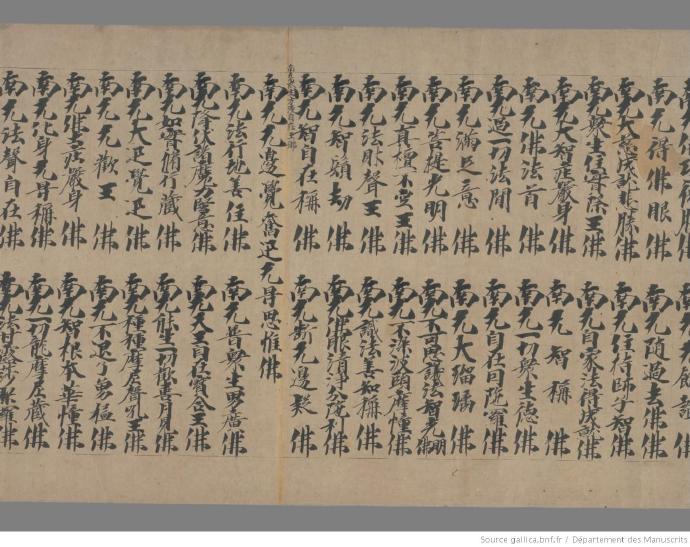 南无得佛眼佛　南无隨過去佛佛
南无大慈成就悲勝佛　南无住持師子智佛
南无眾生住實際王佛　南无自家法得成就佛
南无大智莊嚴身佛　南无智稱佛
南无佛法首佛　南无一切眾生德佛
南无過一切法間佛　南无自在因陀羅佛
南无滿足意佛　南无大瑠璃佛
南无菩提光明佛　南无不可思議法智光明佛
南无真檀不空王佛　南无不染波頭摩幢佛
南无法聲王佛　南无識法善知稱佛
南无智劫佛　南无佛眼清淨分陀利佛
南无智自在稱佛　南无斷无邊疑佛
南无无邊覺奮迅无㝵思惟佛
南无法行地善住佛　南无普眾生幡佛
南无降伏諸魔力堅意佛　南无大王自在寶合王佛
南无如實脩行藏佛　南无能生一切歡喜月見佛
南无大迅覺迅佛　南无種種摩尼聲吼王佛
南无无歡王佛　南无不退了勇猛佛
南无佛莊嚴身佛　南无智根本華幢佛
南无化身无㝵稱佛　南无一切龍摩尼藏佛
南无法聲自在佛　南无
Source gallica.bnf.fr / Département des Manuscrits